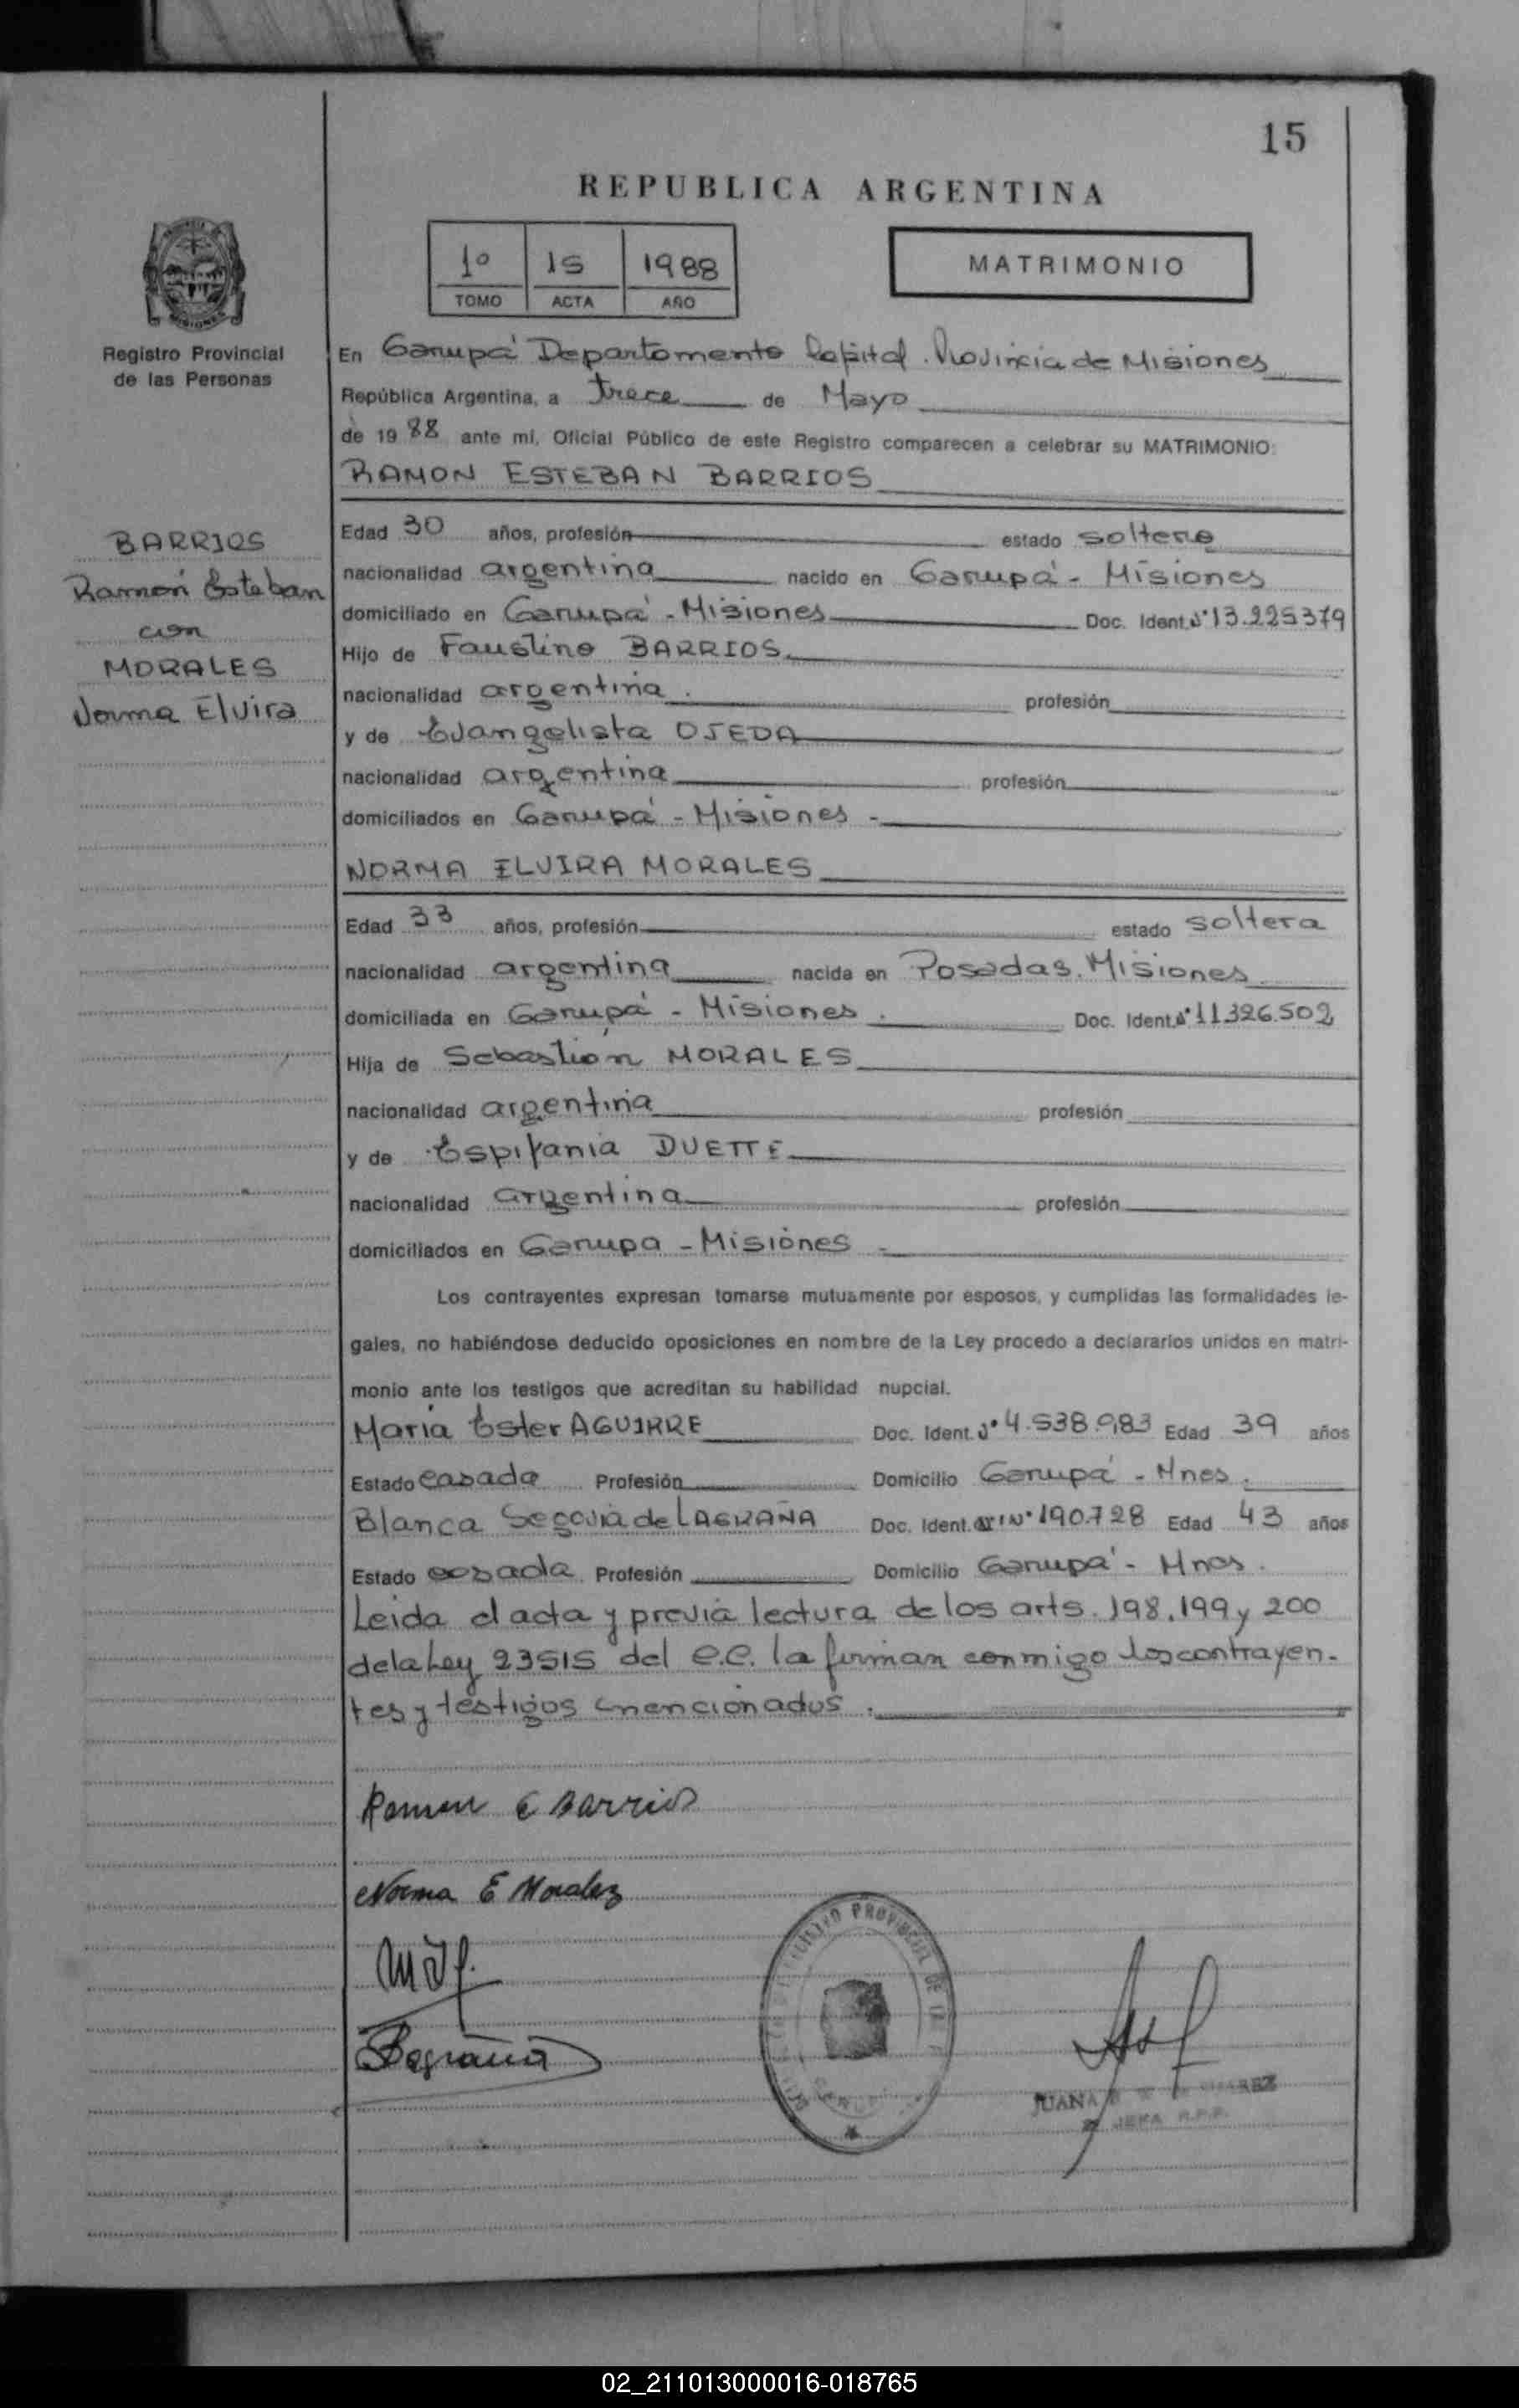 15
REPUBLICA ARGENTINA
1º 15 1988
TOMO ACTA AÑO
MATRIMONIO
Registro Provincial
de las Personas
BARRIOS
Ramón Esteban
con
MORALES
Norma Elvira
En Garupá Departamento Capital. Provincia de Misiones
República Argentina, a trece de Mayo
de 1988 ante mí, Oficial Público de este Registro comparecen a celebrar su MATRIMONIO:
RAMON ESTEBAN BARRIOS
Edad 30 años, profesión estado soltero
nacionalidad argentina nacido en Garupá - Misiones
domiciliado en Garupá - Misiones Doc. Ident. Nº 13.225379
Hijo de Faustino BARRIOS
nacionalidad argentina. profesión
y de Evangelista OJEDA
nacionalidad argentina profesión
domiciliados en Garupá - Misiones -
NORMA ELVIRA MORALES
Edad 33 años, profesión estado soltera
nacionalidad argentina nacida en Posadas. Misiones
domiciliada en Garupá - Misiones. Doc. Ident. Nº 11326.502
Hija de Sebastián MORALES
nacionalidad argentina profesión
y de Espifania DUETTE
nacionalidad argentina profesión
domiciliados en Garupa - Misiones -
Los contrayentes expresan tomarse mutuamente por esposos, y cumplidas las formalidades le-
gales, no habiéndose deducido oposiciones en nombre de la Ley procedo a declararlos unidos en matri-
monio ante los testigos que acreditan su habilidad nupcial.
María Ester AGUIRRE Doc. Ident. Nº 4.538.983 Edad 39 años
Estado casada Profesión Domicilio Garupá - Mnes.
Blanca Segovia de LAGRAÑA Doc. Ident. Nº 190.728 Edad 43 años
Estado casada Profesión Domicilio Garupá - Mnes.
Leida el acta y previa lectura de los arts. 198, 199 y 200
de la Ley 23515 del C.C. la firman conmigo los contrayen-
tes y testigos mencionados.
Ramon E Barrios
Norma E Morales
JUANA
JEFA R.P.P.
02_211013000016-018765